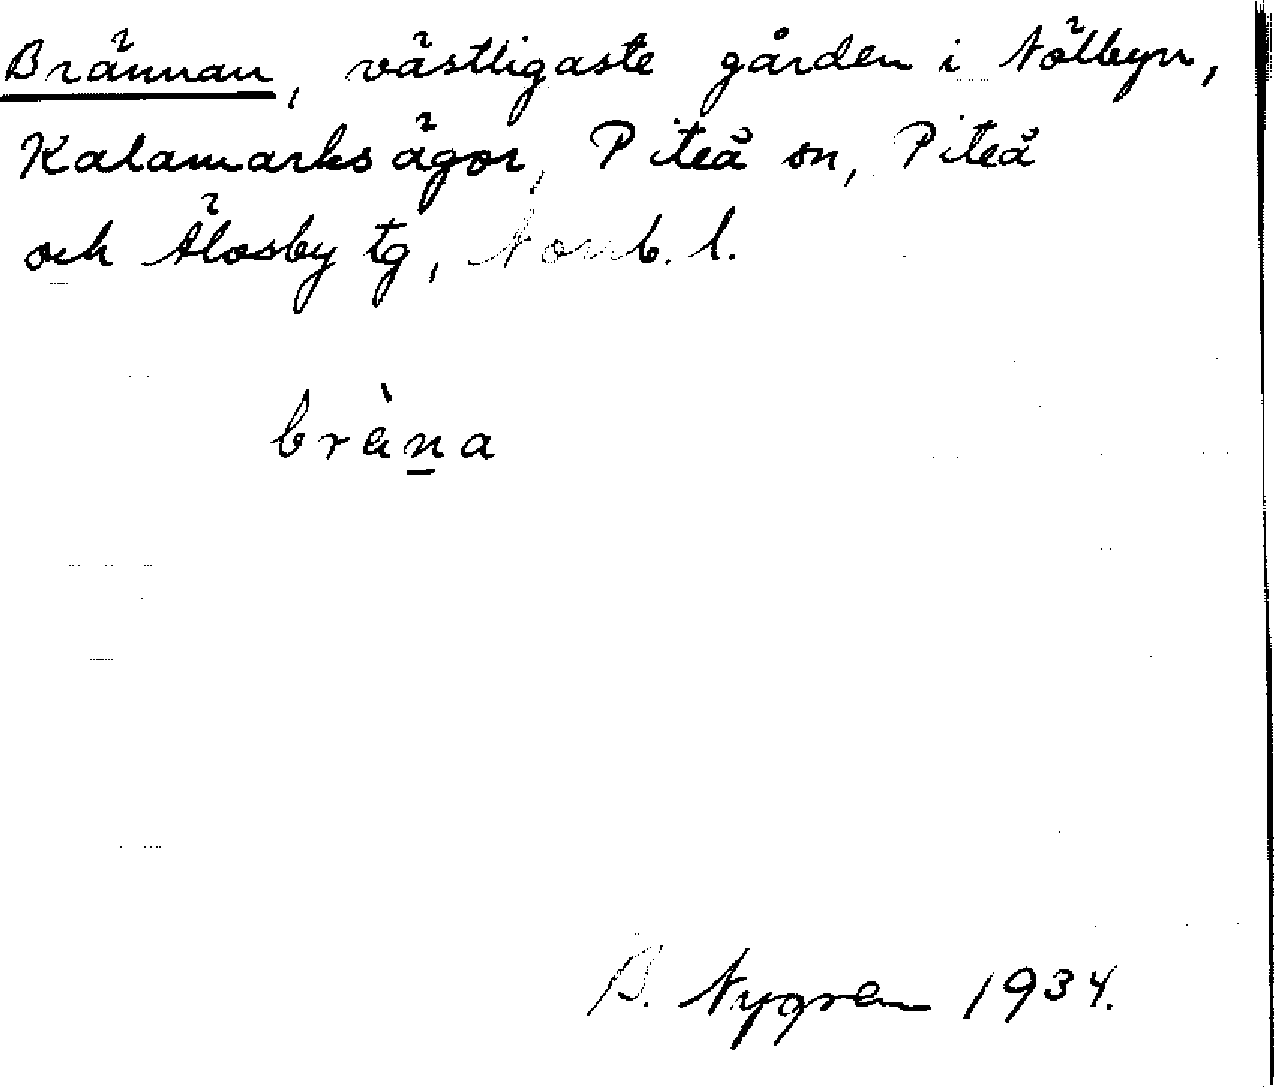 Brännan, västligaste gården i Nölbyn,
Kalamarks ägor, Piteå sn, Piteå
och Älvsby tg, Norrb. l.
bräǹa
B. Nygren 1934.